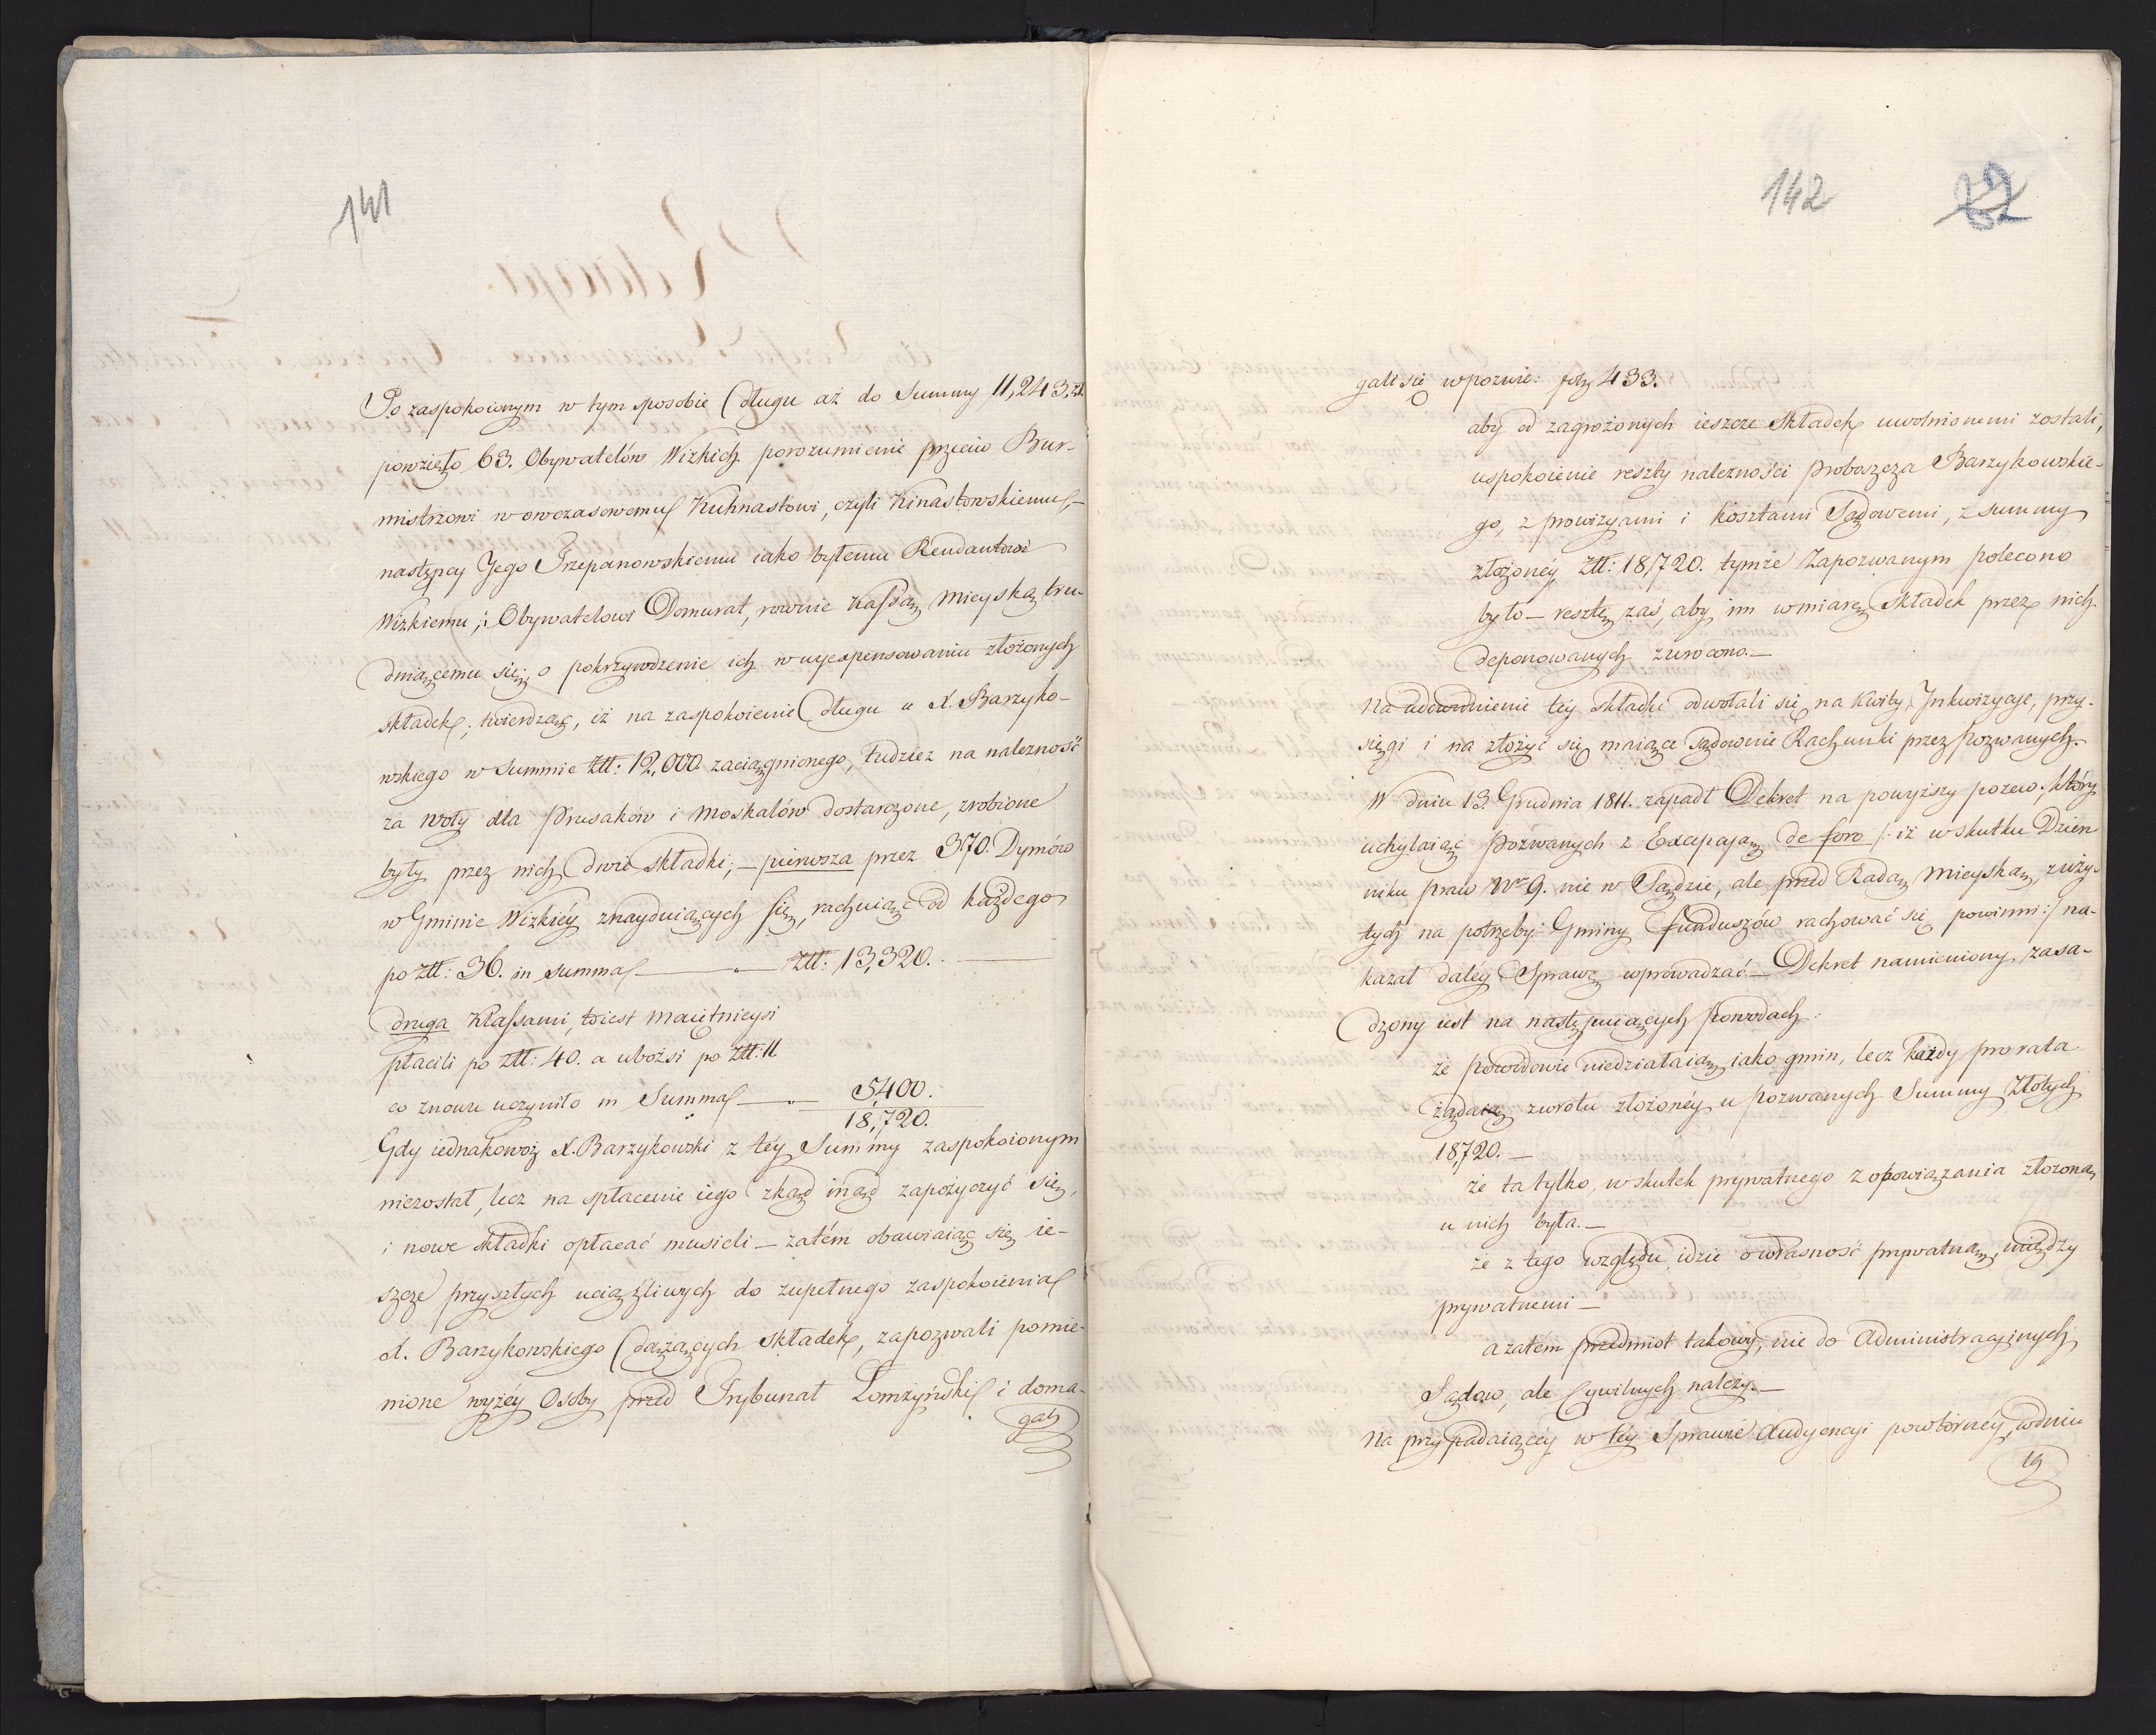 141
Po zaspokoionym w tym sposobie długu aż do Summy 11,243. zł.
powzięło 63. Obywatelów Wizkich porozumienie przeciw Bur-
mistrzowi wowczasowemu Kuhnastowi, czyli Kinastowskiemu,-
następcy Jego Trzepanowskiemu iako byłemu Rendantowi
Wizkiemu, i Obywatelowi Domurat, rownie Kassą Mieyską tru-
dniącemu się, o pokrzywdzenie ich w wyexpensowaniu złożonych
składek; twierdząc, iż na zaspokoienie długu u X. Barzyko-
wskiego w Summie Złł: 12,000. zaciągnionego, tudzież na należność
za woły dla Prusaków i Moskalów dostarczone, zrobione
były przez nich dwie składki; – pierwsza przez 370. Dymów
w Gminie Wizkiéy znayduiących się, rachuiąc od każdego
po Złł: 36. in summa — „ — Złł: 13,320. —
druga Klassami, to iest maiętnieysi
płacili po Złł: 40. a ubożsi po Złł: 11.
co znowu uczyniło in Summa — „ — 5,400.
18,720.
Gdy iednakowoż X. Barzykowski z téy Summy zaspokoionym
niezostał, lecz na spłacenie iego zkąd inąd zapożyczyć się,
i nowe składki opłacać musieli – zatém obawiaiąc się ie-
szcze przyszłych uciążliwych do zupełnego zaspokoienia
X. Barzykowskiego dążących składek, zapozwali pomie-
nione wyżéy Osoby przed Trybunał Łomżyński i doma-
gali
142
22
gali się w pozwie: fol: 433.
aby od zagrożonych ieszcze składek uwolnionemi zostali,
uspokoienie reszty należności Proboszcza Barzykowskie-
go, z prowizyami i kosztami Sądowemi, z summy
złożonéy Złł: 18,720. tymże Zapozwanym polecono
było – resztę zaś, aby im w miarę składek przez nich
deponowanych zwrócono. —
Na udowodnienie téy składki odwołali się na Kwity, Inkwizycye, przy-
sięgi i na złożyć się maiące sądownie Rachunki przez Pozwanych.
W dniu 13 Grudnia 1811. zapadł Dekret na powyższy pozew, który
uchylaiąc Pozwanych z Excepcyą de foro /: iż w skutku Dzien-
niku praw Nr 9. nie w Sądzie, ale przed Radą Mieyską, zuży-
tych na potrzeby Gminy funduszów rachować się powinni :/ na-
kazał daléy Sprawę wprowadzać – Dekret namieniony zasa-
dzony iest na następuiących Powodach:
że Powodowie niedziałaią iako gmin, lecz każdy pro rata
żądaią zwrotu złożonéy u pozwanych Summy Złotych
18,720. —
że ta tylko, w skutek prywatnego zobowiązania złożoną
u nich była. —
że z tego względu idzie o własność prywatną, między
prywatnemi —
a zatem przedmiot takowy, nie do Administracyinych
Sądow, ale Cywilnych należy. —
Na przypadaiącéy w téy Sprawie Audyencyi powtórnéy, w dniu